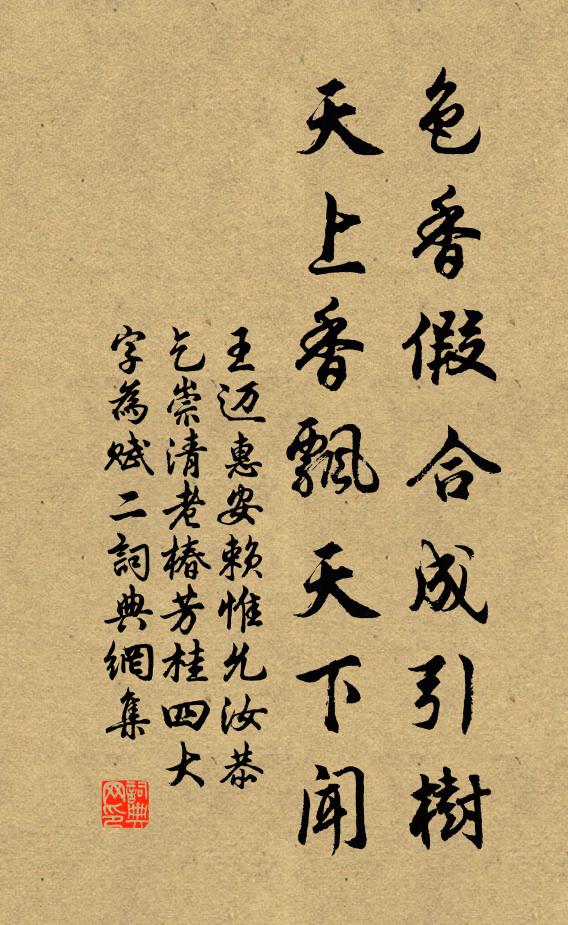 色香假合成引樹
天上香飄天下闻
王迈惠安赖惟允汝恭
乞崇清老椿芳桂四大
字為赋二詞典網集
詞典
网印